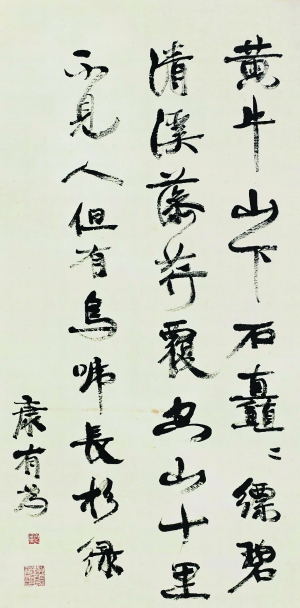 黄牛山下石矗〻缥碧
清溪藤荇覆山十里
不见人但有鸟啼長杉绿
康有為